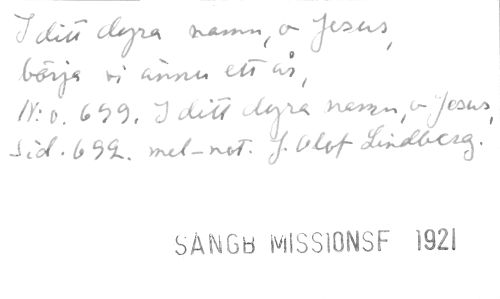 I ditt dyra namn, o Jesus,
börja vi ännu ett år,
N:o. 699. I ditt dyra namn, o Jesus,
Sid. 692. mel-not. J. Olof Lindberg.
SÅNGB MISSIONSF 1921